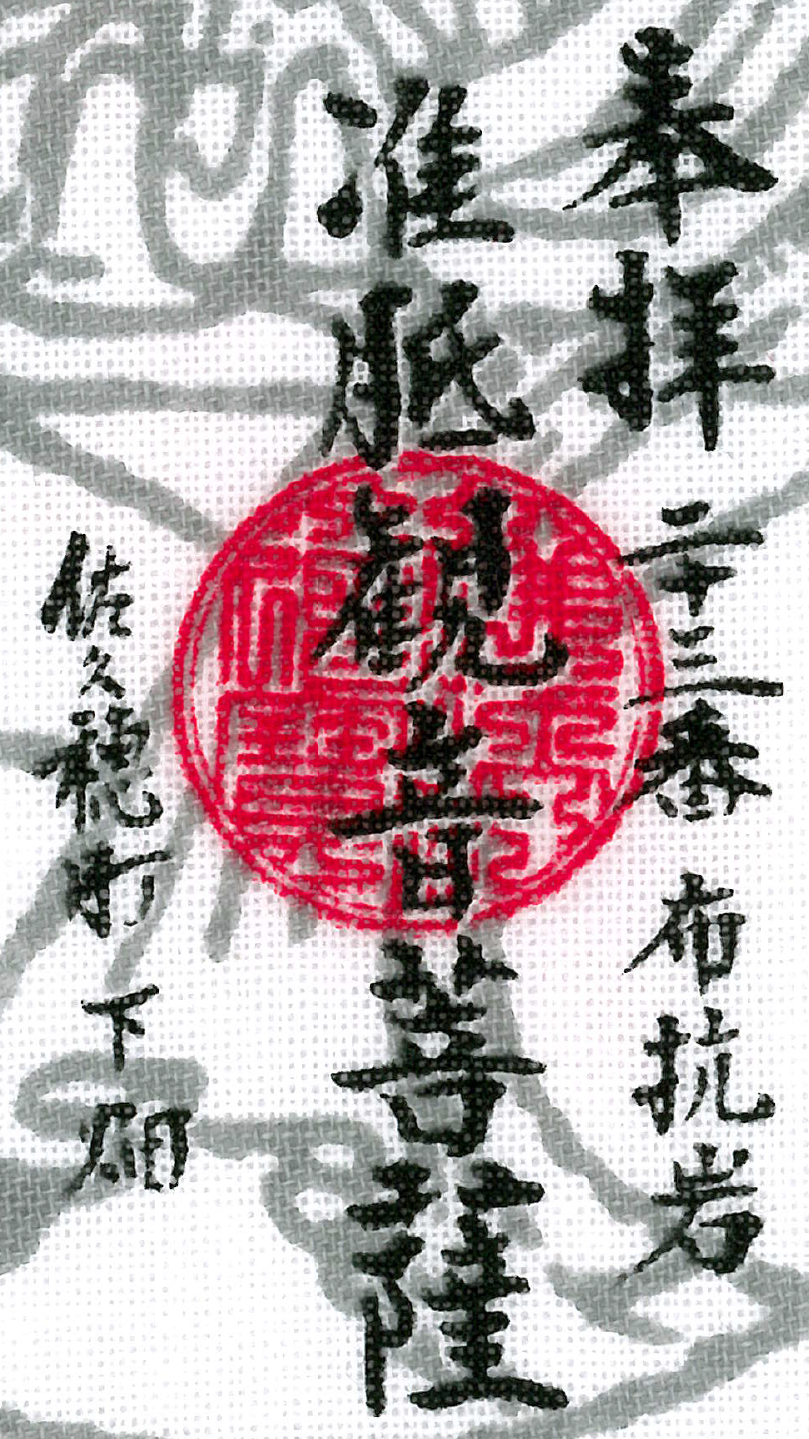 奉拝 二十三番 布抗岩
准胝観音菩薩
佐久穂町 下畑